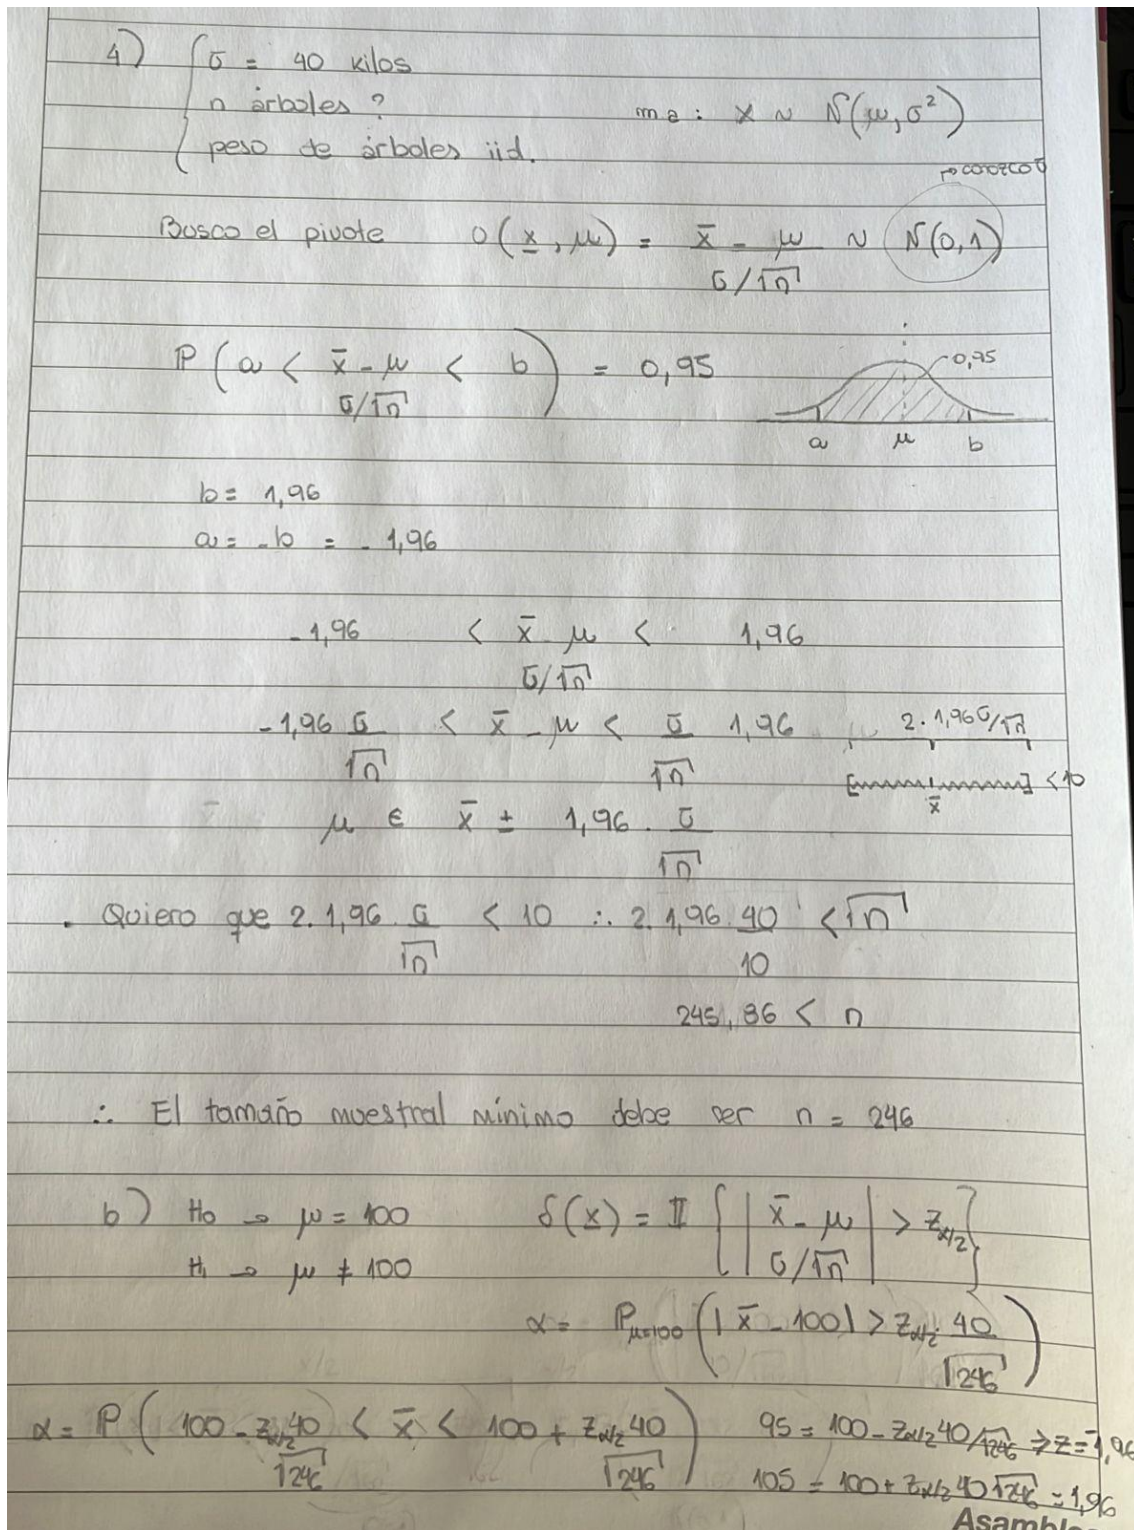 4) { σ = 40 kilos
n árboles ?
ma : X ~ N(μ, σ²)
peso de árboles iid.
→ conozco σ
Busco el pivote O(x, μ) = x̄ - μ / σ/√n ~ N(0,1)
P ( a < x̄ - μ / σ/√n < b ) = 0,95
0,95
a μ b
b = 1,96
a = -b = - 1,96
-1,96 < x̄ - μ / σ/√n < 1,96
-1,96 σ/√n < x̄ - μ < σ/√n 1,96
2. 1,96 σ/√n
[ x̄ ] < 10
μ ∈ x̄ ± 1,96 . σ/√n
. Quiero que 2. 1,96 . σ/√n < 10 ∴ 2. 1,96 . 40/10 < √n
245,86 < n
∴ El tamaño muestral mínimo debe ser n = 246
b) H₀ → μ = 100 δ(x) = II { | x̄ - μ / σ/√n | > z α/2 }
H₁ → μ ≠ 100
α = P μ=100 ( | x̄ - 100 | > z α/2 . 40/√246 )
α = P ( 100 - z α/2 40/√246 < x̄ < 100 + z α/2 40/√246 ) 95 = 100 - z α/2 40/√246 ⇒ z = -1,96
105 = 100 + z α/2 40 √246 = 1,96